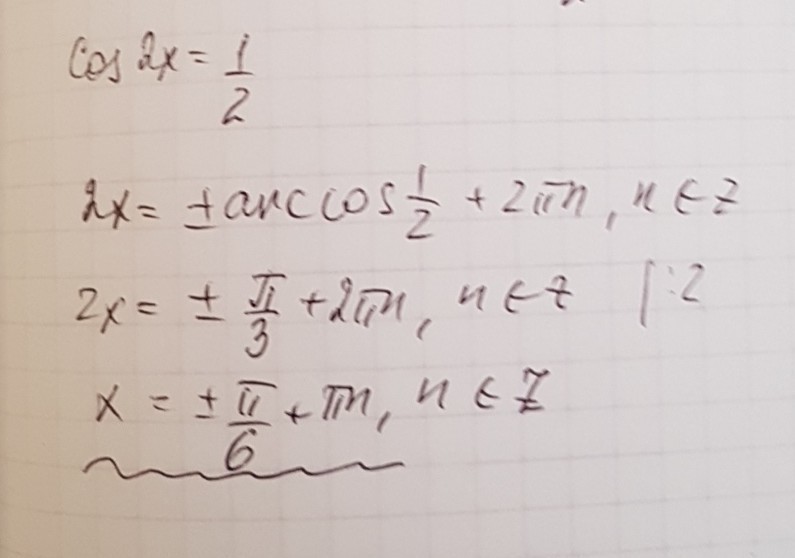 cos 2x = 1/2
2x = ± arccos 1/2 + 2πn, n ∈ Z
2x = ± π/3 + 2πn, n ∈ Z |:2
x = ± π/6 + πn, n ∈ Z